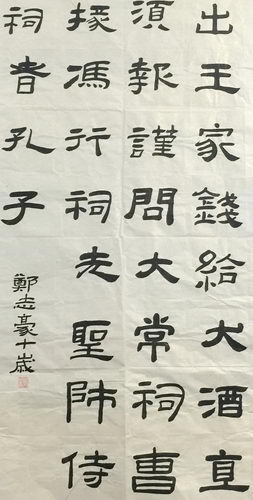 出王家錢給犬酒直
須報謹問大常祠曹
掾馮牟祠先聖師侍
祠者孔子
鄭志豪十歲